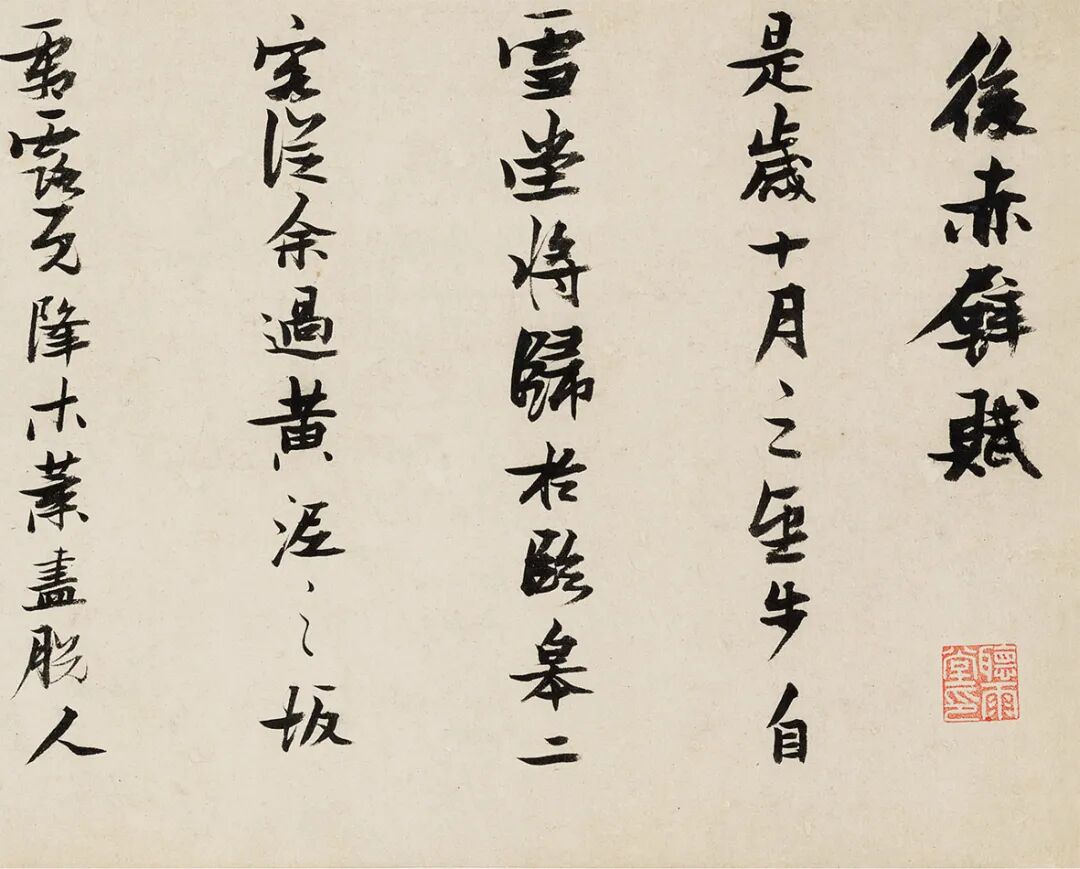 後赤壁賦
是歲十月之望步自
雪堂將歸於臨皋二
客從余過黃泥之坂
霜露既降木葉盡脫人
聽雨堂印